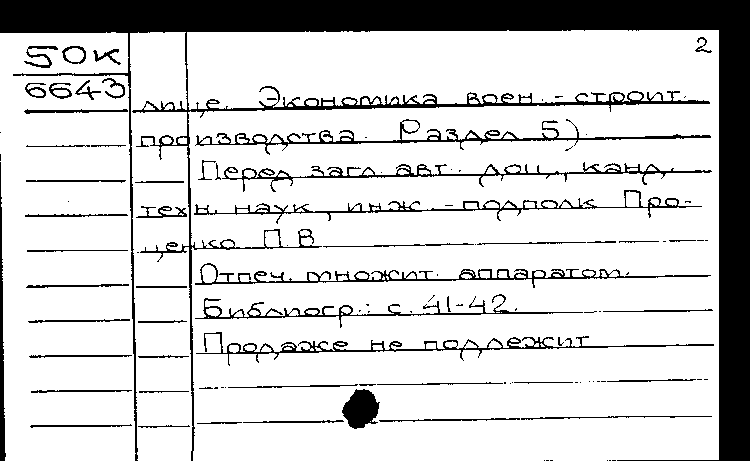 2
50К
6643
лище. Экономика воен.-строит.
производства. Раздел 5)
Перед загл. авт.: доц., канд.
техн. наук, инж.-подполк. Про-
ценко П.В.
Отпеч. множит. аппаратом.
Библиогр.: с. 41-42.
Продаже не подлежит